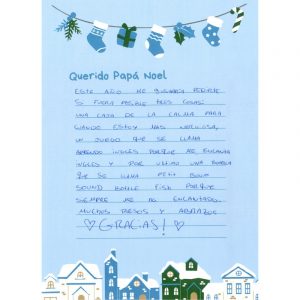 Querido Papá Noel
ESTE AÑO ME GUSTARÍA PEDIRTE
SI FUERA POSIBLE TRES COSAS:
UNA CAJA DE LA CALMA PARA
CUANDO ESTOY MAS NERVIOSA,
UN JUEGO QUE SE LLAMA
APRENDO INGLES PORQUE ME ENCANTA
INGLES Y POR ULTIMO UNA
QUE SE LLAMA
SOUND BOTTLE FISH PORQUE
SIEMPRE ME HA ENCANTADO.
MUCHOS BESOS Y ABRAZOS
¡GRACIAS!